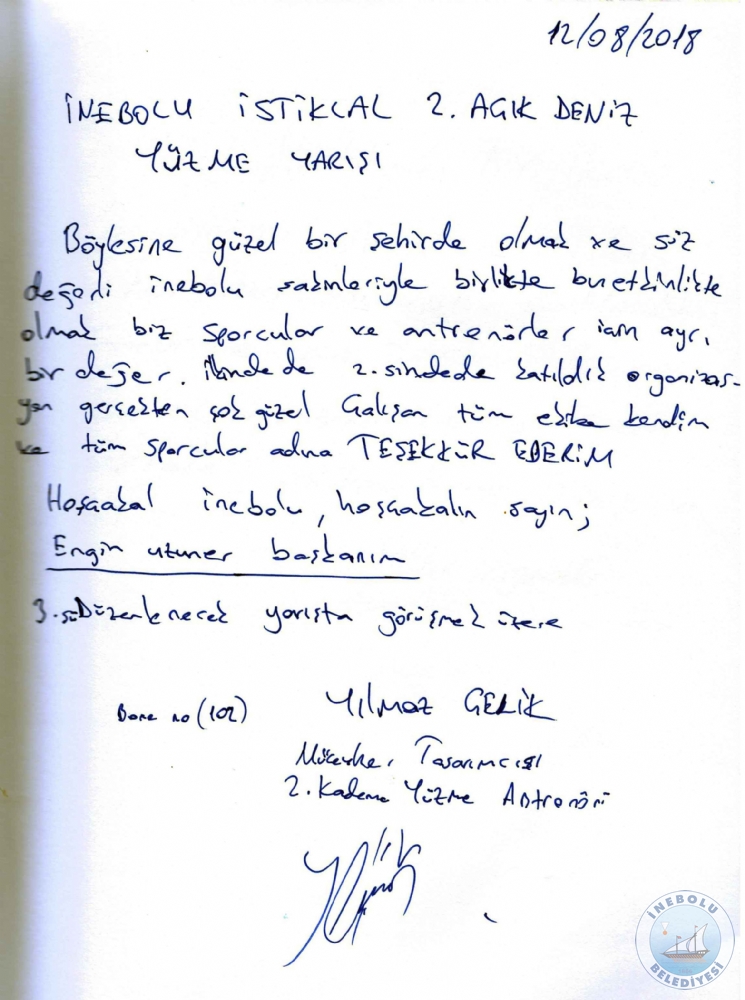 12/08/2018
İNEBOLU İSTİKLAL 2. AÇIK DENİZ
YÜZME YARIŞI
Böylesine güzel bir şehirde olmak ve siz
değerli inebolu sakinleriyle birlikte bu etkinlikte
olmak biz sporcular ve antrenörler için ayrı
bir değer. ilkinde de 2.sindede katıldık organizas-
yon gerçekten çok güzel Çalışan tüm ekibe kendim
ve tüm sporcular adına TEŞEKKÜR EDERİM
Hoşçakal inebolu, hoşçakalın sayın;
Engin uzuner başkanım
3.sü Düzenlenecek yarışta görüşmek üzere
Bone no (102)
Yılmaz ÇELİK
Tasarımcısı
2. Kademe Yüzme Antrenörü
İNEBOLU
BELEDİYESİ